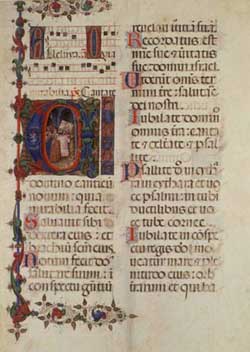 Alleluia
mirabilia Cantate
domino canticū
nouum: quia
mirabilia fecit.
Saluauit sibi
dextera eius: et
brachiū scm̄ eius
Notum fecit dom̄
salutare suum: i
conspectu gentiū
reuelauit iustitiā suā.
Recordatus est
sue et ueritatis
sue domui israel.
Viderunt omnes
termini terre: salutare
dei nostri.
Iubilate domino
omnis terra: cantate
et exultate et
psallite.
Psallite dn̄o in cythara
et uoce
psalmi: in tubis
ductilibus et uoce
tube cornee.
Iubilate in cōspectu
regis dn̄i: moueatur
mare et plenitudo
eius: orbis
terrarum et qui